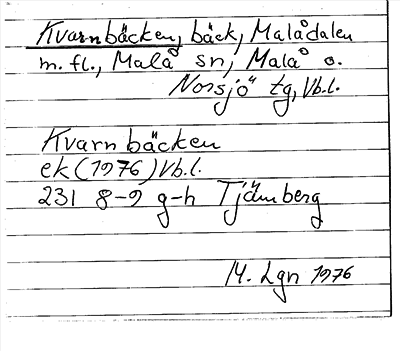 Kvarnbäcken, bäck, Malådalen
m. fl., Malå sn, Malå o.
Norsjö tg, Vb.l.
Kvarnbäcken
ek (1976) Vb.l.
231 8-9 g-h Tjämberg
M. Lgn 1976